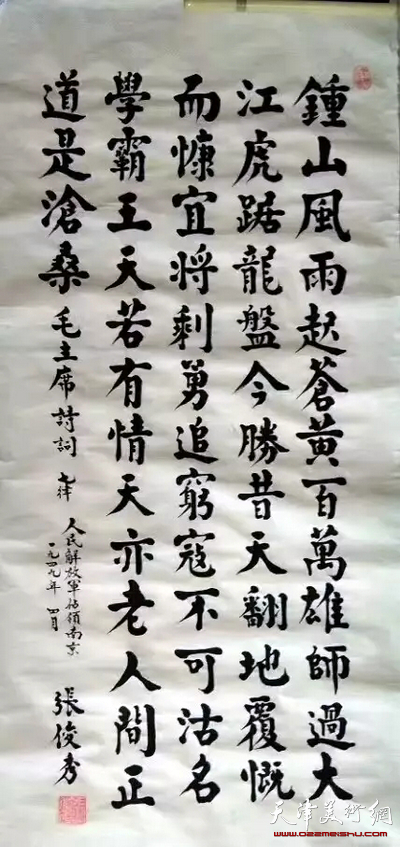 鍾山風雨起蒼黃百萬雄師過大
江虎踞龍盤今勝昔天翻地覆慨
而慷宜將剩勇追窮寇不可沽名
學霸王天若有情天亦老人間正
道是滄桑毛主席詩詞七律
人民解放軍佔領南京
一九四九年四月
張俊秀
天津美術網
www.022meishu.com